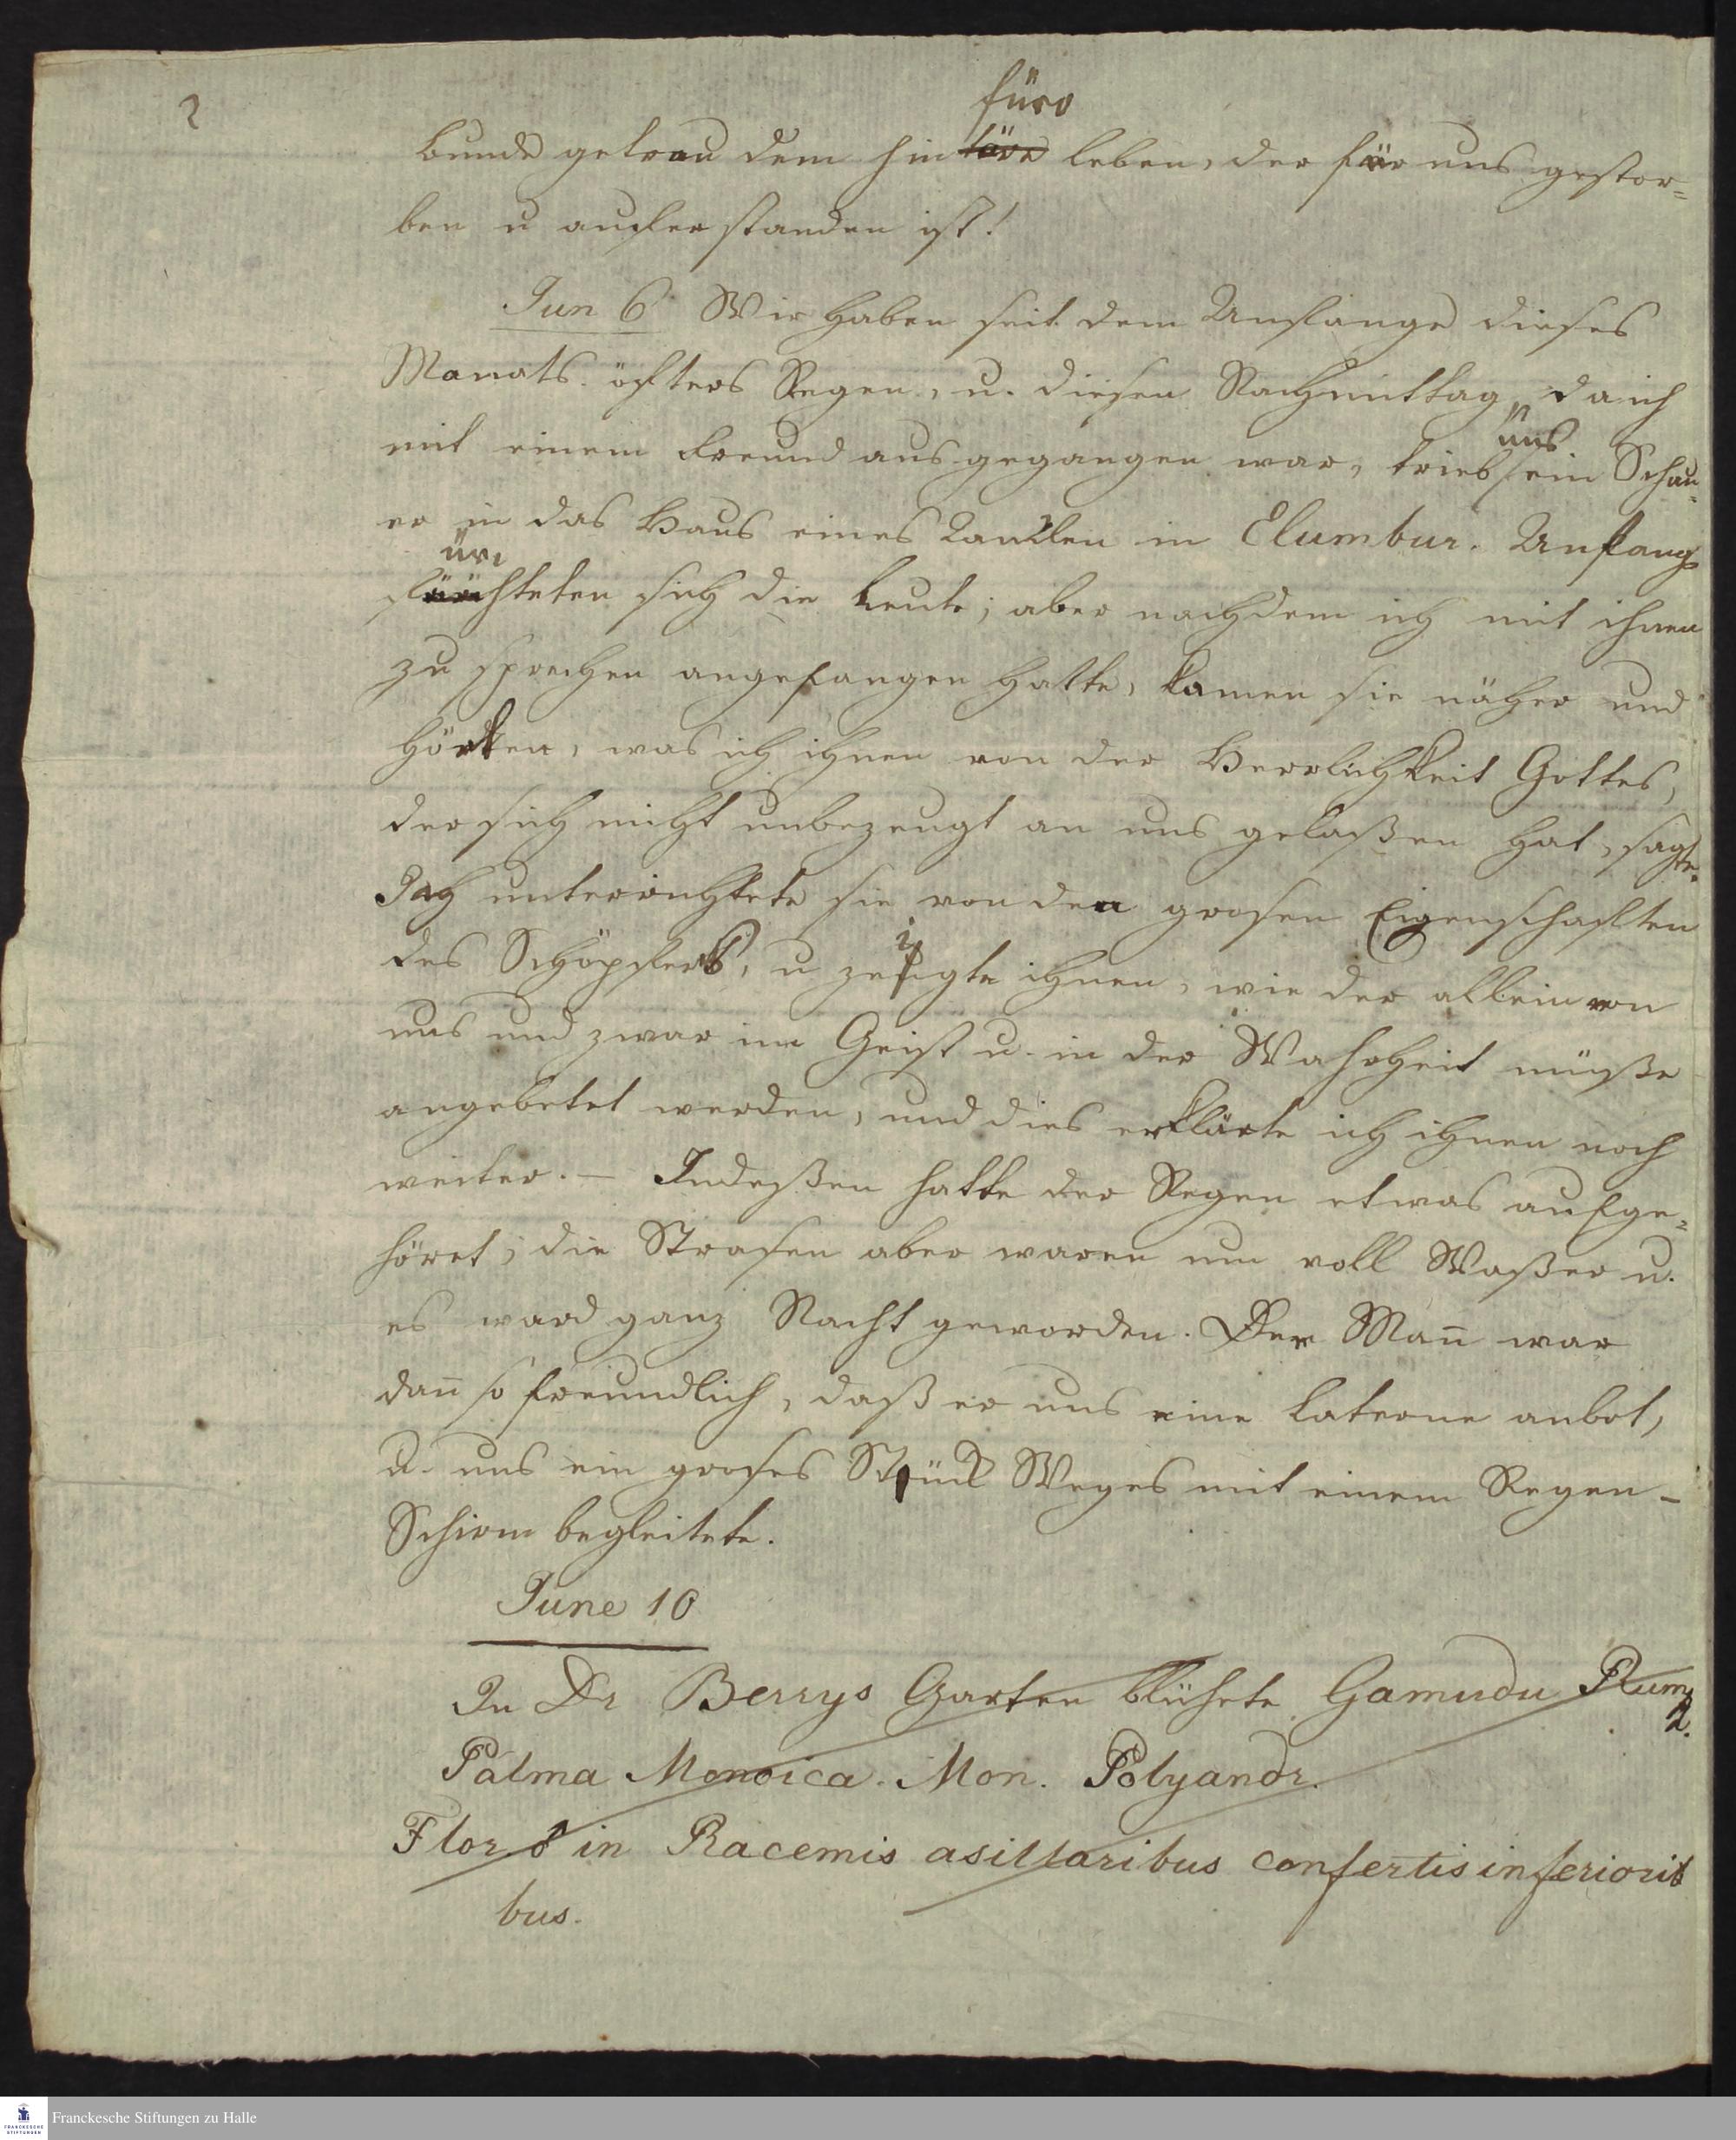 2
füro
bunde getreu dem hin töre leben, der für uns gestor=
ben u auferstanden ist!
Jun 6 Wir haben seit dem Anfange dieses
Monats öfters Regen, u. diesen Nachmittag, da ich
uns
mit einem Freund ausgegangen war, trieb ein Schau=
er in das Haus eines in Elumbur. Anfangs
ür
chteten sich die Leute; aber nachdem ich mit ihnen
zu sprechen angefangen hatte, kamen sie näher und
hörten, was ich ihnen von der Herrlichkeit Gottes,
der sich nicht unbezeugt an uns gelaßen hat, sagte.
Ich unterrichtete sie von den grosen Eigenschafften
des Schöpfers, u zeigte ihnen, wie der allein von
uns und zwar im Geist u. in der Wahrheit müße
angebetet werden, und dies erklärte ich ihnen noch
weiter. — Indeßen hatte der Regen etwas aufge=
höret; die Strasen aber waren nun voll Waßer u.
es ward ganz Nacht geworden. Der Mañ war
dañ so freundlich, daß er uns eine Laterne anbot,
u. uns ein groses Stück Weges mit einem Regen-
Schirm begleitete.
June 10
In Dr Berrys Garten blühete Gamudu Rum
2.
Palma Monoica. Mon. Polyandr.
Flor ♂ in Racemis asillaribus confertis inferiorib
bus.
Franckesche Stiftungen zu Halle
FRANCKESCHE
STIFTUNGEN